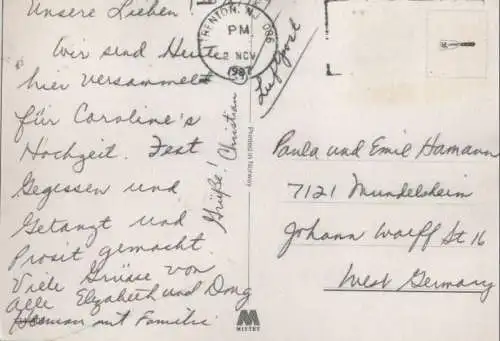 Unsere Lieben!
Wir sind Heute
hier versammelt
für Caroline's
Hochzeit. Fest
Gegessen und
Getanzt und
Prosit gemacht.
Viele Grüsse von
alle Elizabeth und Doug
mit Familie
Grüße! Christian
TRENTON, NJ 086
PM
2 NOV
1987
Luftpost
Printed in Norway
Paula und Emil Hamann
7121 Mundelsheim
Johann Worff St 16
West Germany
MITTET